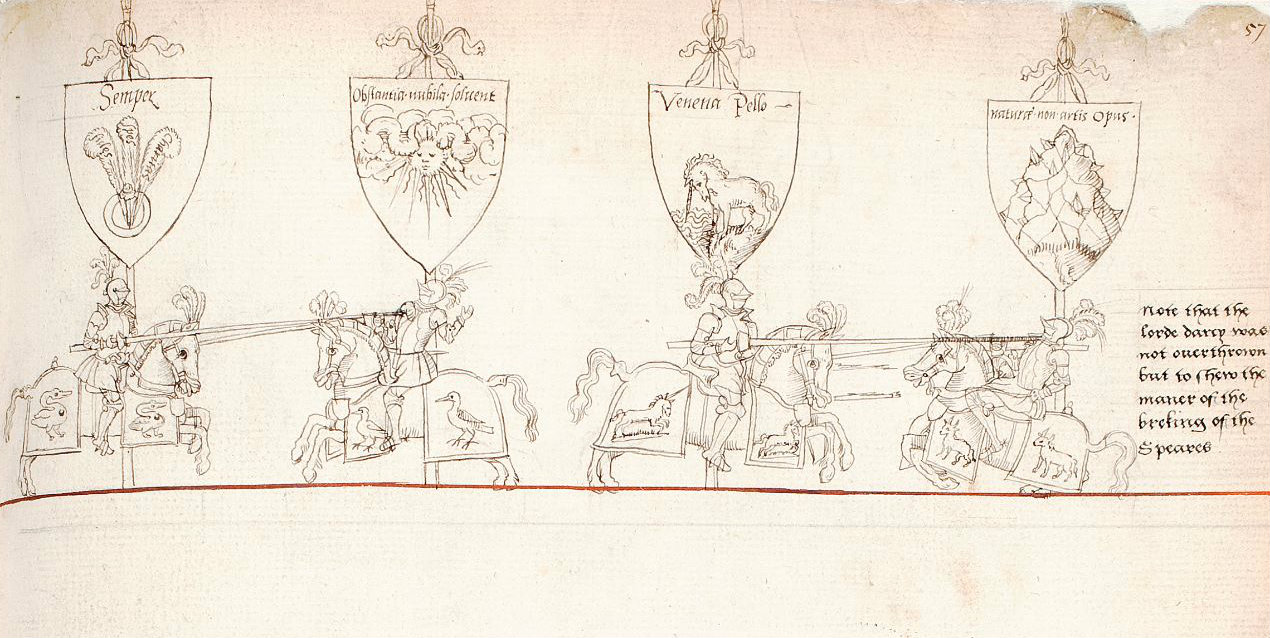 57
Semper
fides
spes
Charitas
Obstantia · nubila · soluent
Venena Pello
naturæ · non · artis Opus ·
Note that the
lorde darcy was
not ouerthrown
but to shew the
maner of the
breking of the
Speares